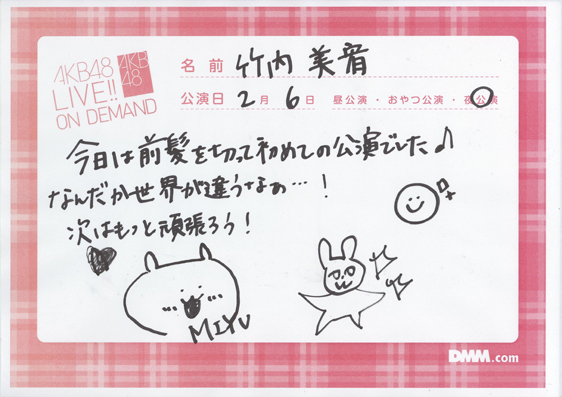 AKB48
LIVE!!
ON DEMAND
AKB
48
名前 竹内 美宥
公演日 2月 6日 昼公演・おやつ公演・夜公演
今日は前髪を切って初めての公演でした♪
なんだか世界が違うなぁ…!
次はもっと頑張ろう!
MIYU
DMM.com